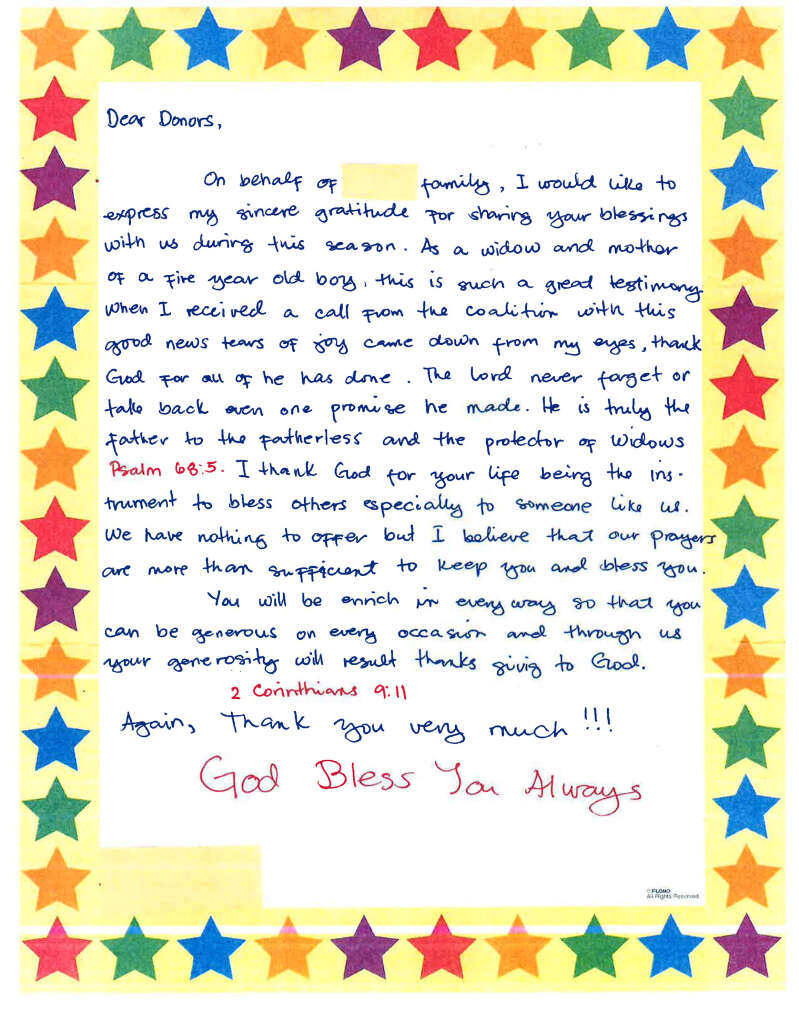 Dear Donors,
On behalf of family, I would like to
express my sincere gratitude for sharing your blessings
with us during this season. As a widow and mother
of a five year old boy, this is such a great testimony
when I received a call from the coalition with this
good news tears of joy came down from my eyes, thank
God for all of he has done. The lord never forget or
take back even one promise he made. He is truly the
father to the fatherless and the protector of widows
Psalm 68:5. I thank God for your life being the ins-
trument to bless others especially to someone like us.
We have nothing to offer but I believe that our prayers
are more than sufficient to keep you and bless you.
You will be enrich in every way so that you
can be generous on every occasion and through us
your generosity will result thanks givig to God.
2 Corinthians 9:11
Again, Thank you very much!!!
God Bless You Always
© FLOMO
All Rights Reserved